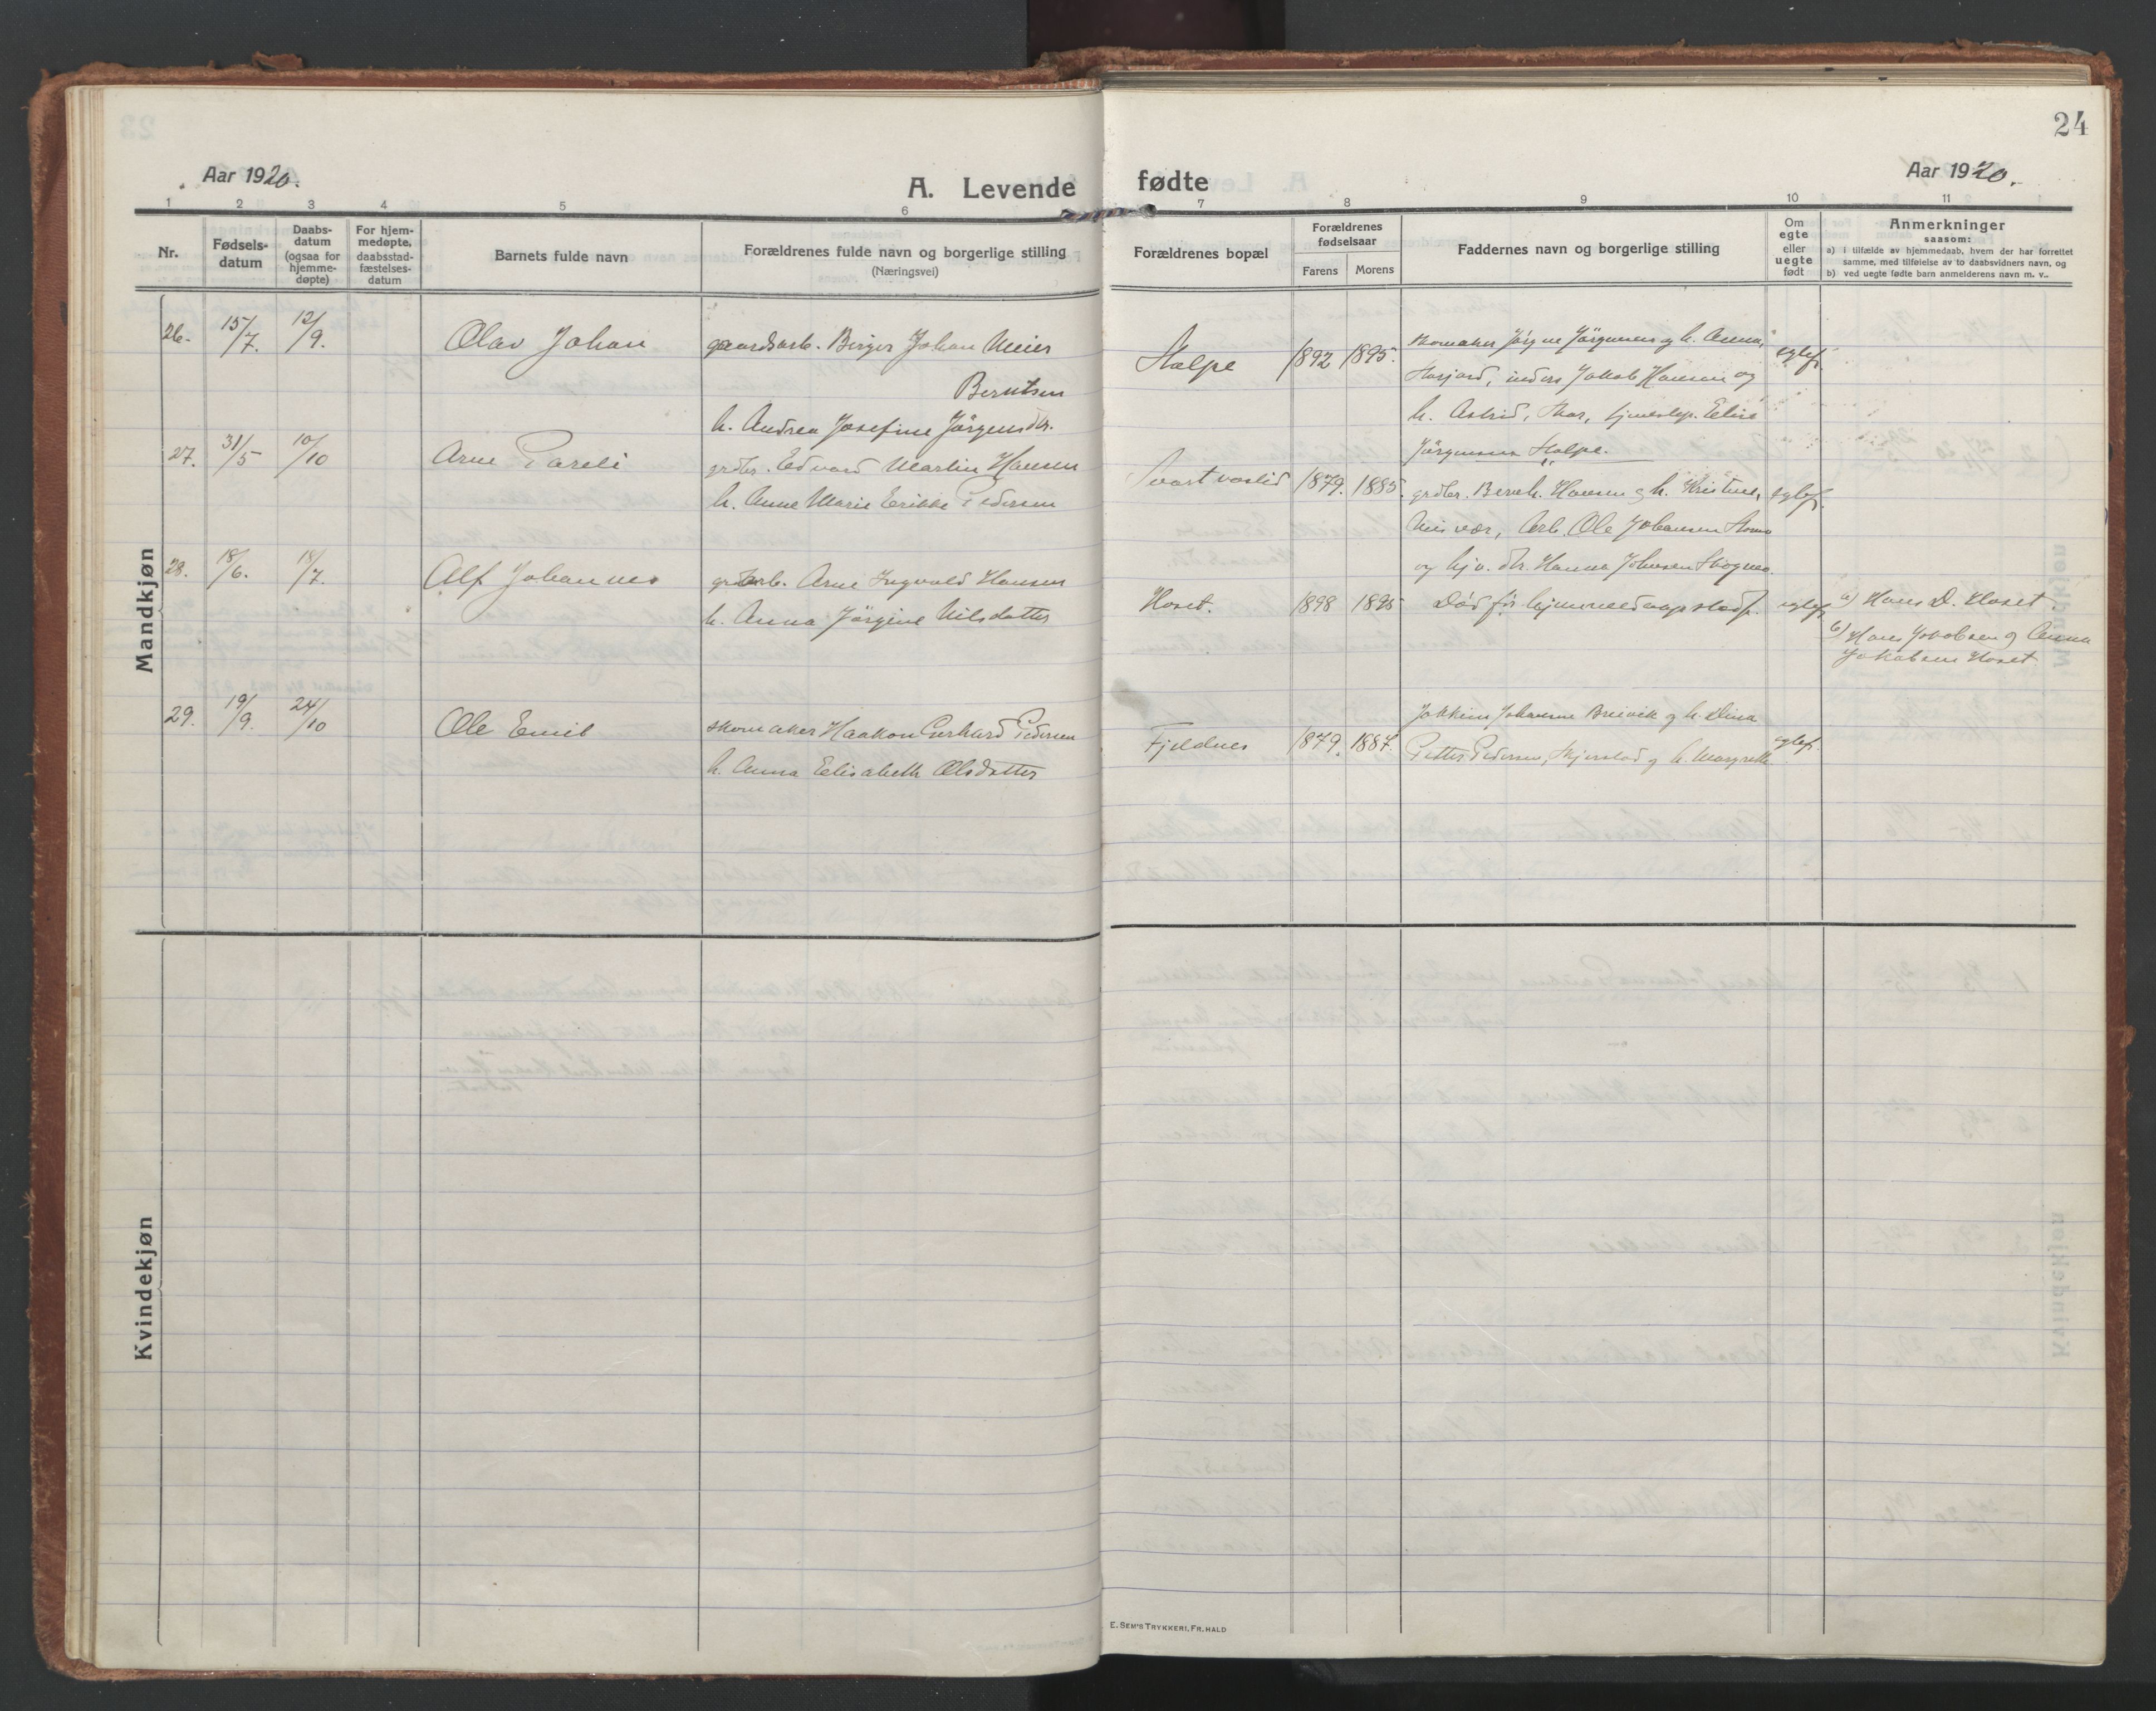 24
Aar 1920.
A. Levende
fødte
Aar 1920.
1 2 3 4 5 6 7 8 9 10 11
Nr.
Fødsels-
datum
Daabs-
datum
(ogsaa for
hjemme-
døpte)
For hjem-
medøpte,
daabsstad-
fæstelses-
datum
Barnets fulde navn
Forældrenes fulde navn og borgerlige stilling
(Næringsvei)
Forældrenes bopæl
Forældrenes
fødselsaar
Farens
Morens
Faddernes navn og borgerlige stilling
Om
egte
eller
uegte
født
Anmerkninger
saasom:
a) i tilfælde av hjemmedaab, hvem der har forrettet
samme, med tilføielse av to daabsvidners navn, og
b) ved uegte fødte barn anmelderens navn m. v..
Mandkjøn
26. 15/7. 12/9. Olav Johan
gaardsarb. Birger Johan Meier
Berntsen
h. Andrea Josefine Jörgensdtr.
Stolpe 1892 1895.
skomaker Jörgine Jörgensen og h. Anna,
Jakob Hansen og
h. Astrid,
Jörgensen Stolpe.
egtef.
27. 31/5 10/10 Arne Pareli
grdbr. Edvard Martin Hansen
h. Anne Marie Erikke Pedersen
Svartvaslid 1879. 1885.
grdbr. Bernh. Hansen og h. Kristine,
Misvær, Arb. Ole Johansen
og hjv. dtr. Hanna Johansen
egtef.
28. 18/6. 18/7. Alf Johannes
Arne Ingvald Hansen
h. Anna Jörgine Nilsdatter
Hoset. 1898 1895
Död för hjemmedaap stadf.
egtef.
a) Hans D. Hoset
b) Hans Jakobsen og Anna
Jakobsen Hoset
29. 19/9. 24/10 Ole Emil
skomaker Haakon Gerhard Pedersen
h. Anna Elisabeth Olsdatter
Fjeldnes 1879. 1887.
Jokkim Johansen Breivik og h. Dina
Petter Pedersen, Skjerstad og h. Margrethe
egtef.
Kvindekjøn
E. SEM'S TRYKKERI, FR. HALD